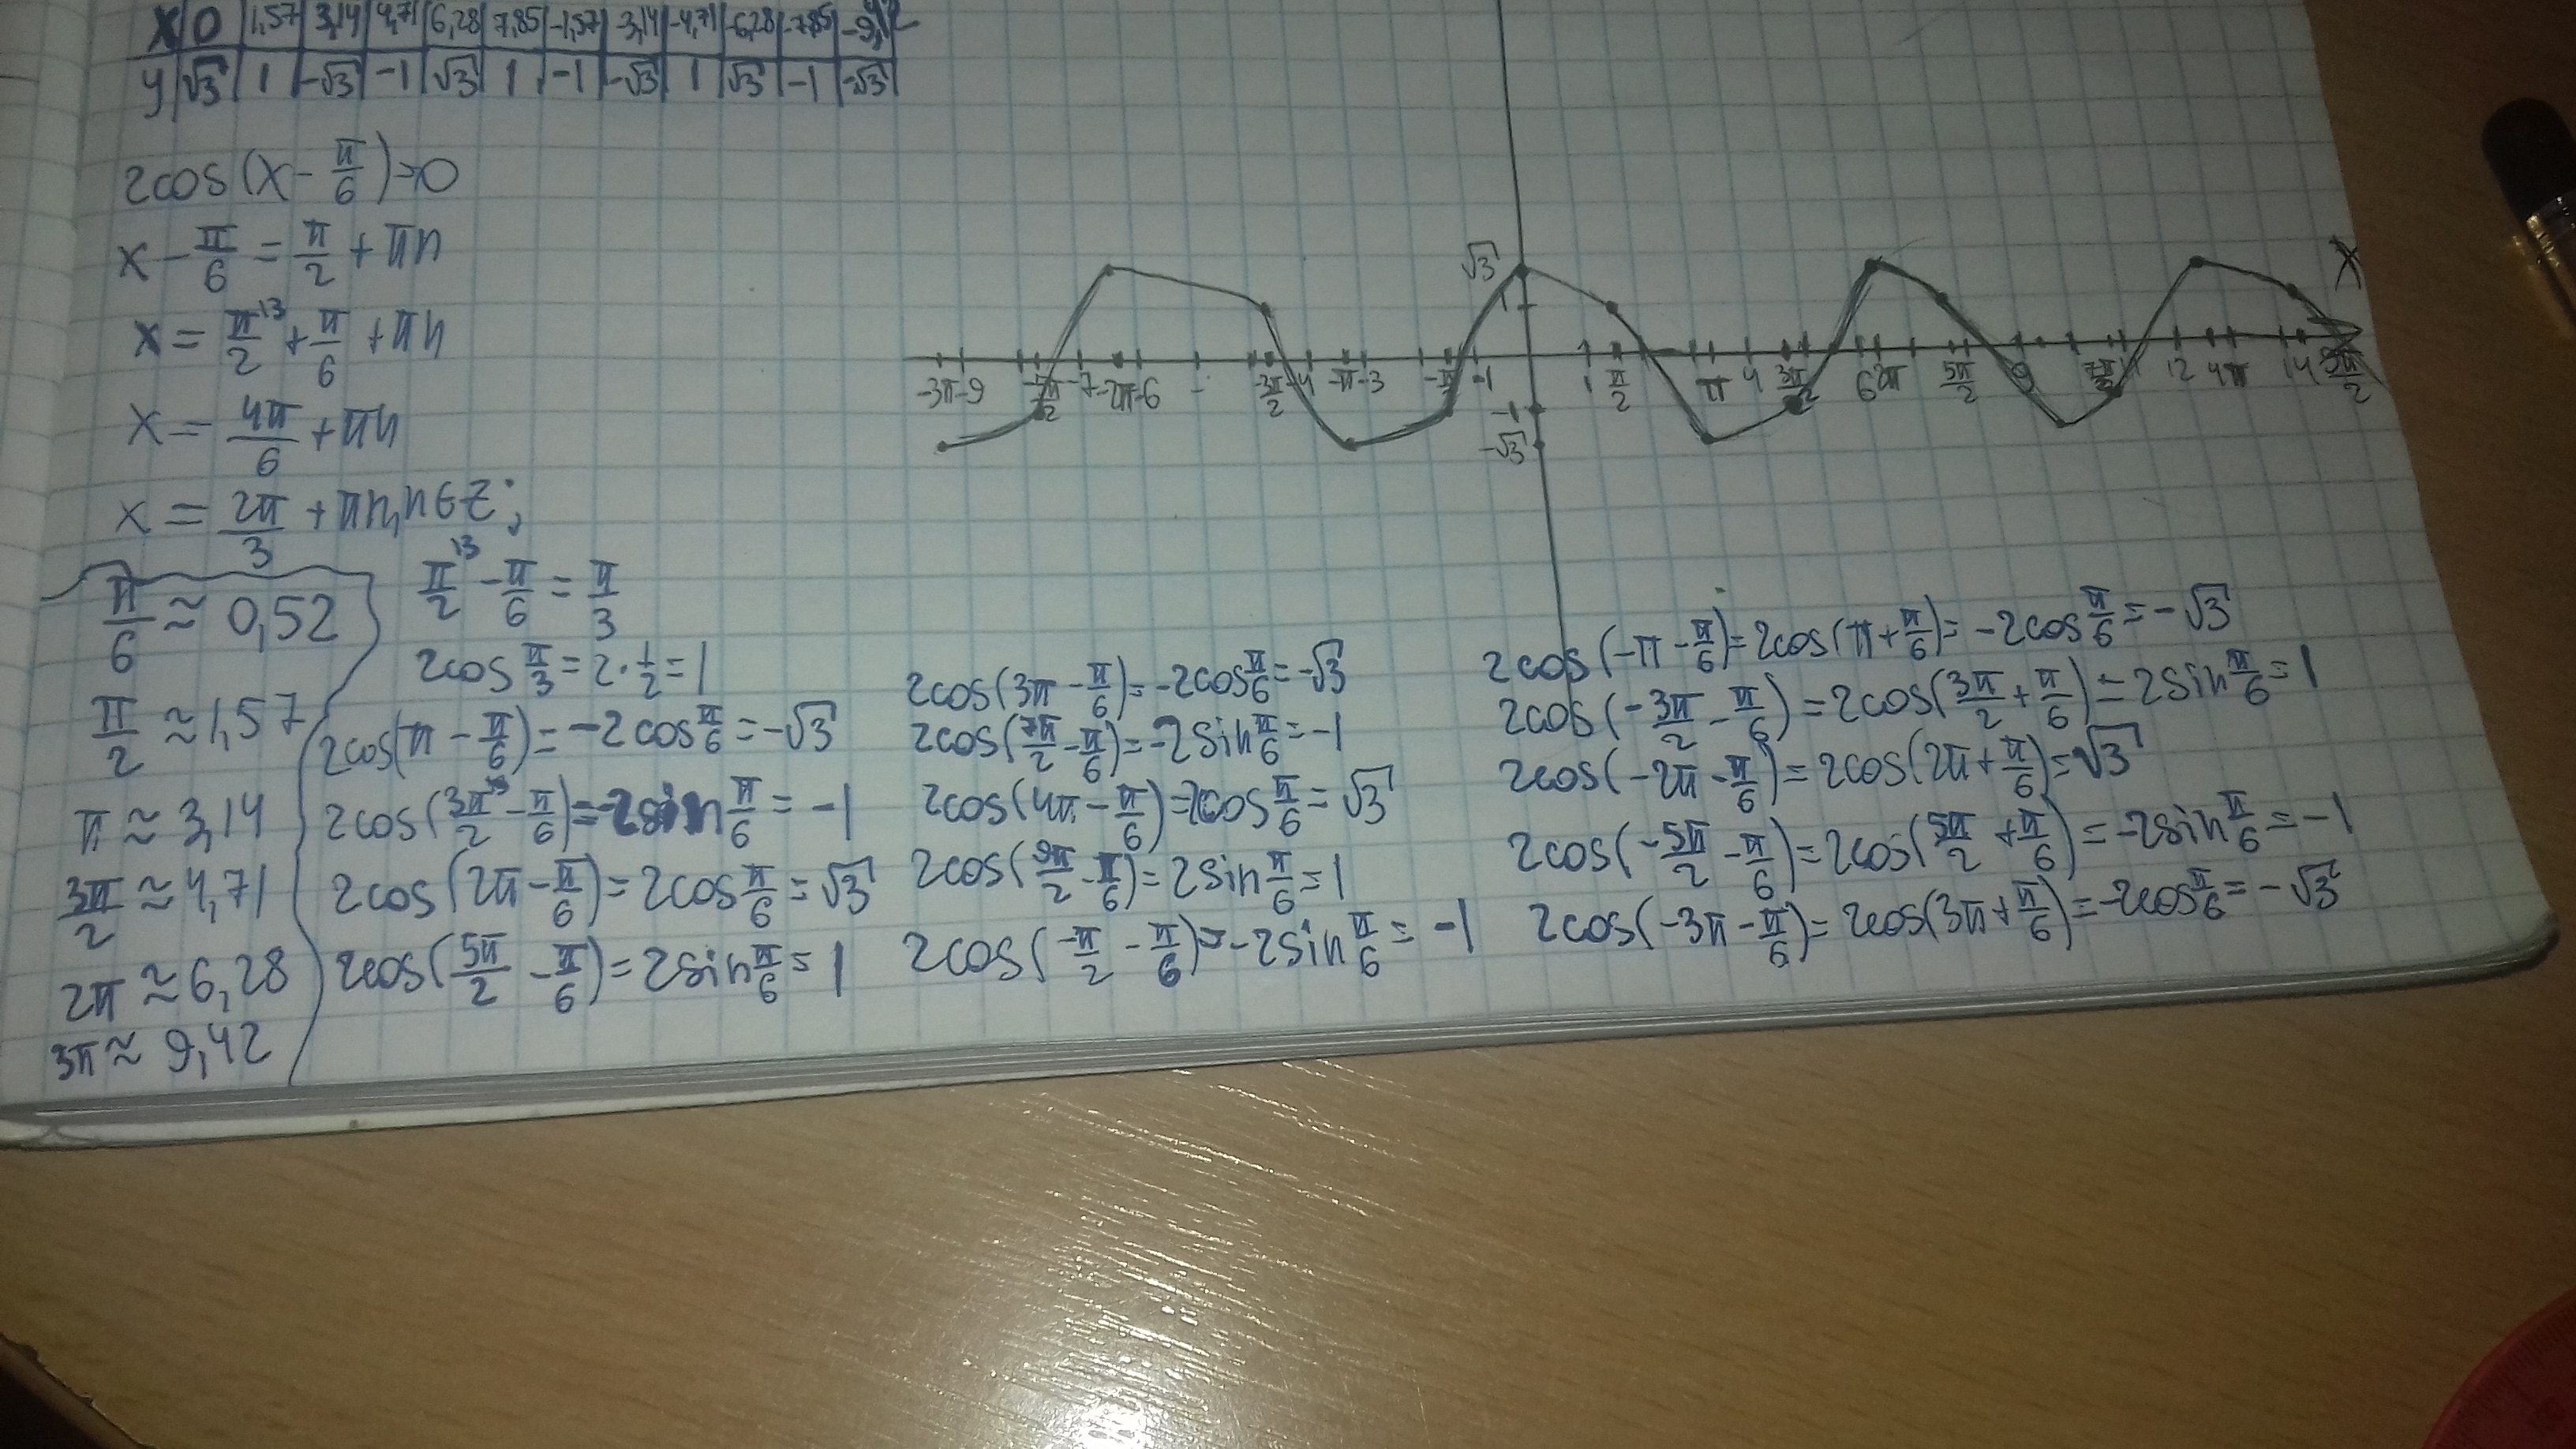 x 0 1,57 3,14 4,71 6,28 7,85 -1,57 -3,14 -4,71 -6,28 -7,85 -9,42
y √3 1 -√3 -1 √3 1 -1 -√3 1 √3 -1 -√3
2cos(x - π/6) = 0
x - π/6 = π/2 + πn
x = π/2 + π/6 + πn
x = 4π/6 + πn
x = 2π/3 + πn, n∈Z;
π/6 ≈ 0,52
π/2 ≈ 1,57
π ≈ 3,14
3π/2 ≈ 4,71
2π ≈ 6,28
3π ≈ 9,42
π/2 - π/6 = π/3
2cos π/3 = 2·1/2 = 1
2cos(π - π/6) = -2cos π/6 = -√3
2cos(3π/2 - π/6) = -2sin π/6 = -1
2cos(2π - π/6) = 2cos π/6 = √3
2cos(5π/2 - π/6) = 2sin π/6 = 1
2cos(3π - π/6) = -2cos π/6 = -√3
2cos(7π/2 - π/6) = -2sin π/6 = -1
2cos(4π - π/6) = 2cos π/6 = √3
2cos(9π/2 - π/6) = 2sin π/6 = 1
2cos(-π/2 - π/6) = -2sin π/6 = -1
2cos(-π - π/6) = 2cos(π + π/6) = -2cos π/6 = -√3
2cos(-3π/2 - π/6) = 2cos(3π/2 + π/6) = 2sin π/6 = 1
2cos(-2π - π/6) = 2cos(2π + π/6) = √3
2cos(-5π/2 - π/6) = 2cos(5π/2 + π/6) = -2sin π/6 = -1
2cos(-3π - π/6) = 2cos(3π + π/6) = -2cos π/6 = -√3
√3
1
x
-3π -9 -5π/2 -7 -2π -6 -3π/2 -4 -π -3 -π/2 -1 1 π/2 π 4 3π/2 6 2π 5π/2 9 7π/2 12 4π 14 9π/2
-1
-√3